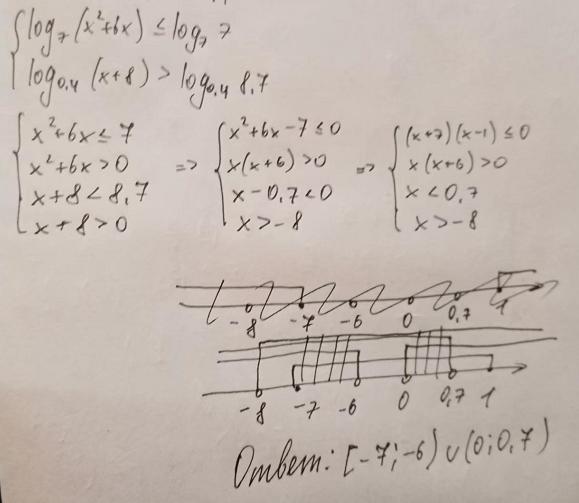 log₇ (x²+6x) ≤ log₇ 7
log₀,₄ (x+8) > log₀,₄ 8,7
x²+6x ≤ 7 => x²+6x-7 ≤ 0 => (x+7)(x-1) ≤ 0
x²+6x > 0 x(x+6) > 0 x(x+6) > 0
x+8 < 8,7 x-0,7 < 0 x < 0,7
x+8 > 0 x > -8 x > -8
-8 -7 -6 0 0,7 1
-8 -7 -6 0 0,7 1
Ответ: [-7; -6) ∪ (0; 0,7)